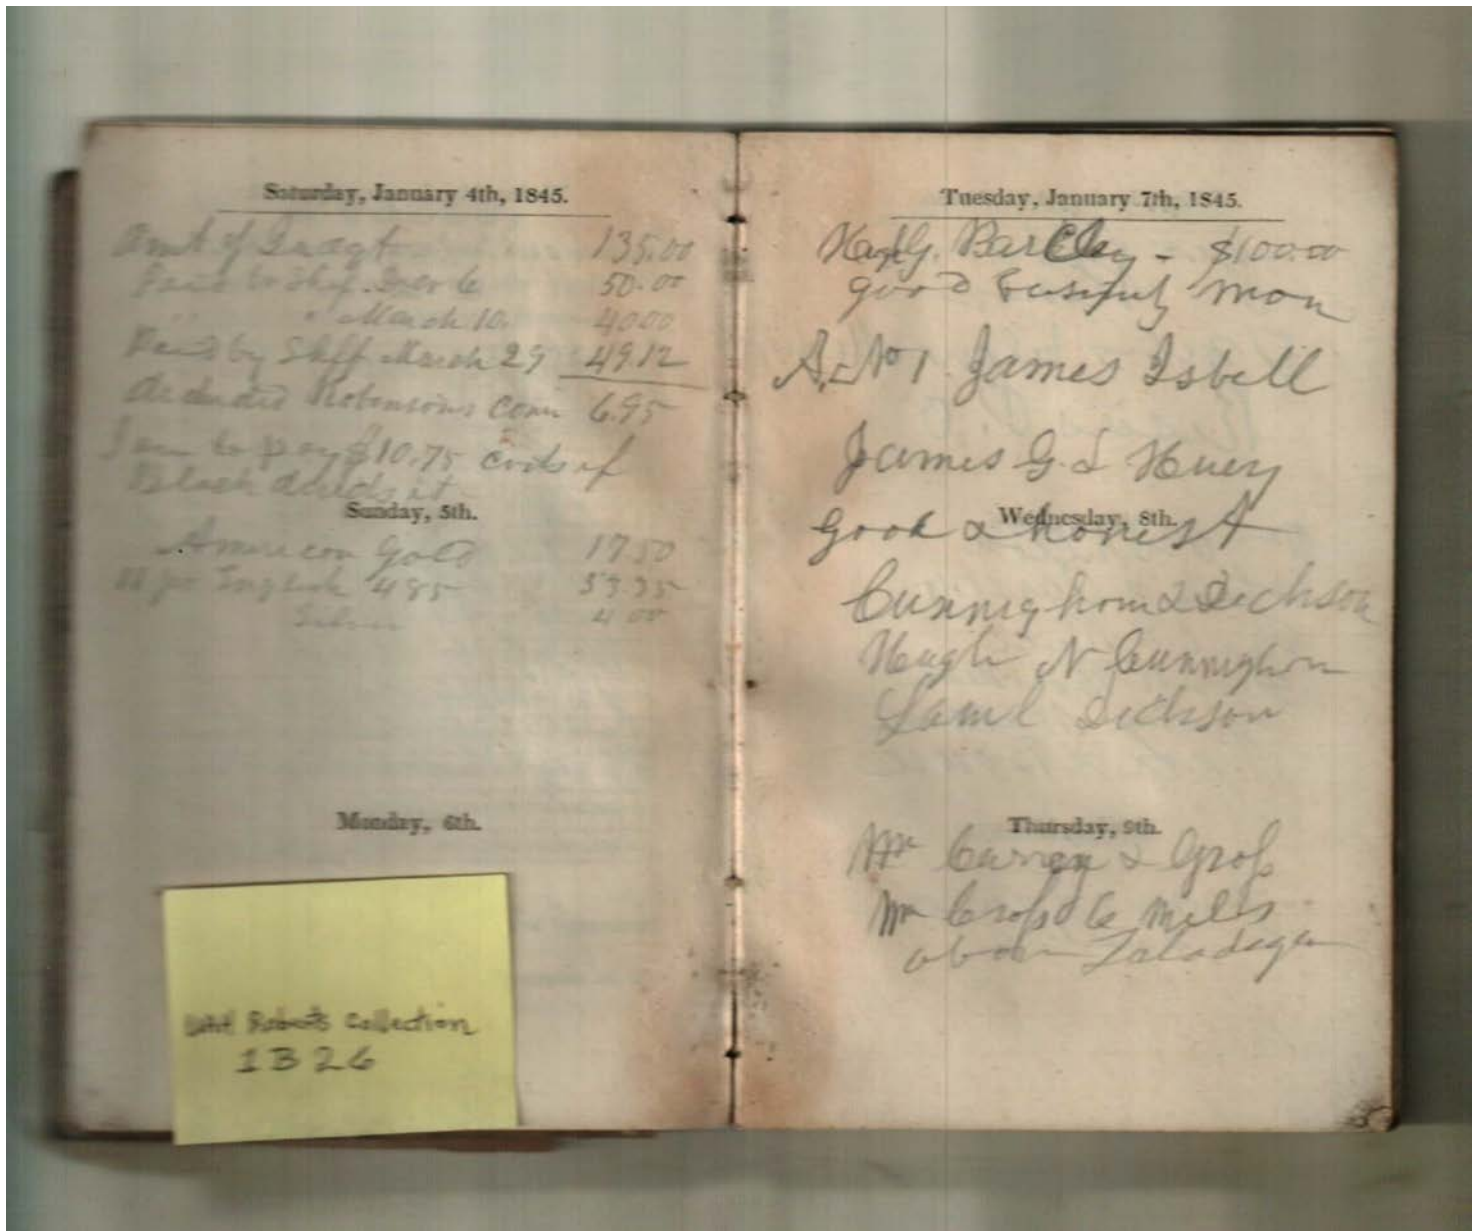 Saturday, January 4th, 1845.
Amt of Judgt 135.00
Paid to Shff. 50.00
" " March 10. 40.00
Paid by Shff March 29 49.12
deducted Robinsons Com 6.95
I am to pay $10.75 costs if
Black it
Sunday, 5th.
American Gold 17.50
English 485
Silver 4 00
Monday, 6th.
UAH Roberts Collection
1B26
Tuesday, January 7th, 1845.
Hugh G. Barclay - $100.00
good man
A, No 1 James Isbell
James G. L Huey
Wednesday, 8th.
Good & honest
Cunnighom & Dickson
Hugh N Cunnighom
Saml Dickson
Thursday, 9th.
Mr Curry & Groſs
Mr Groſs 6 miles
above Taladega